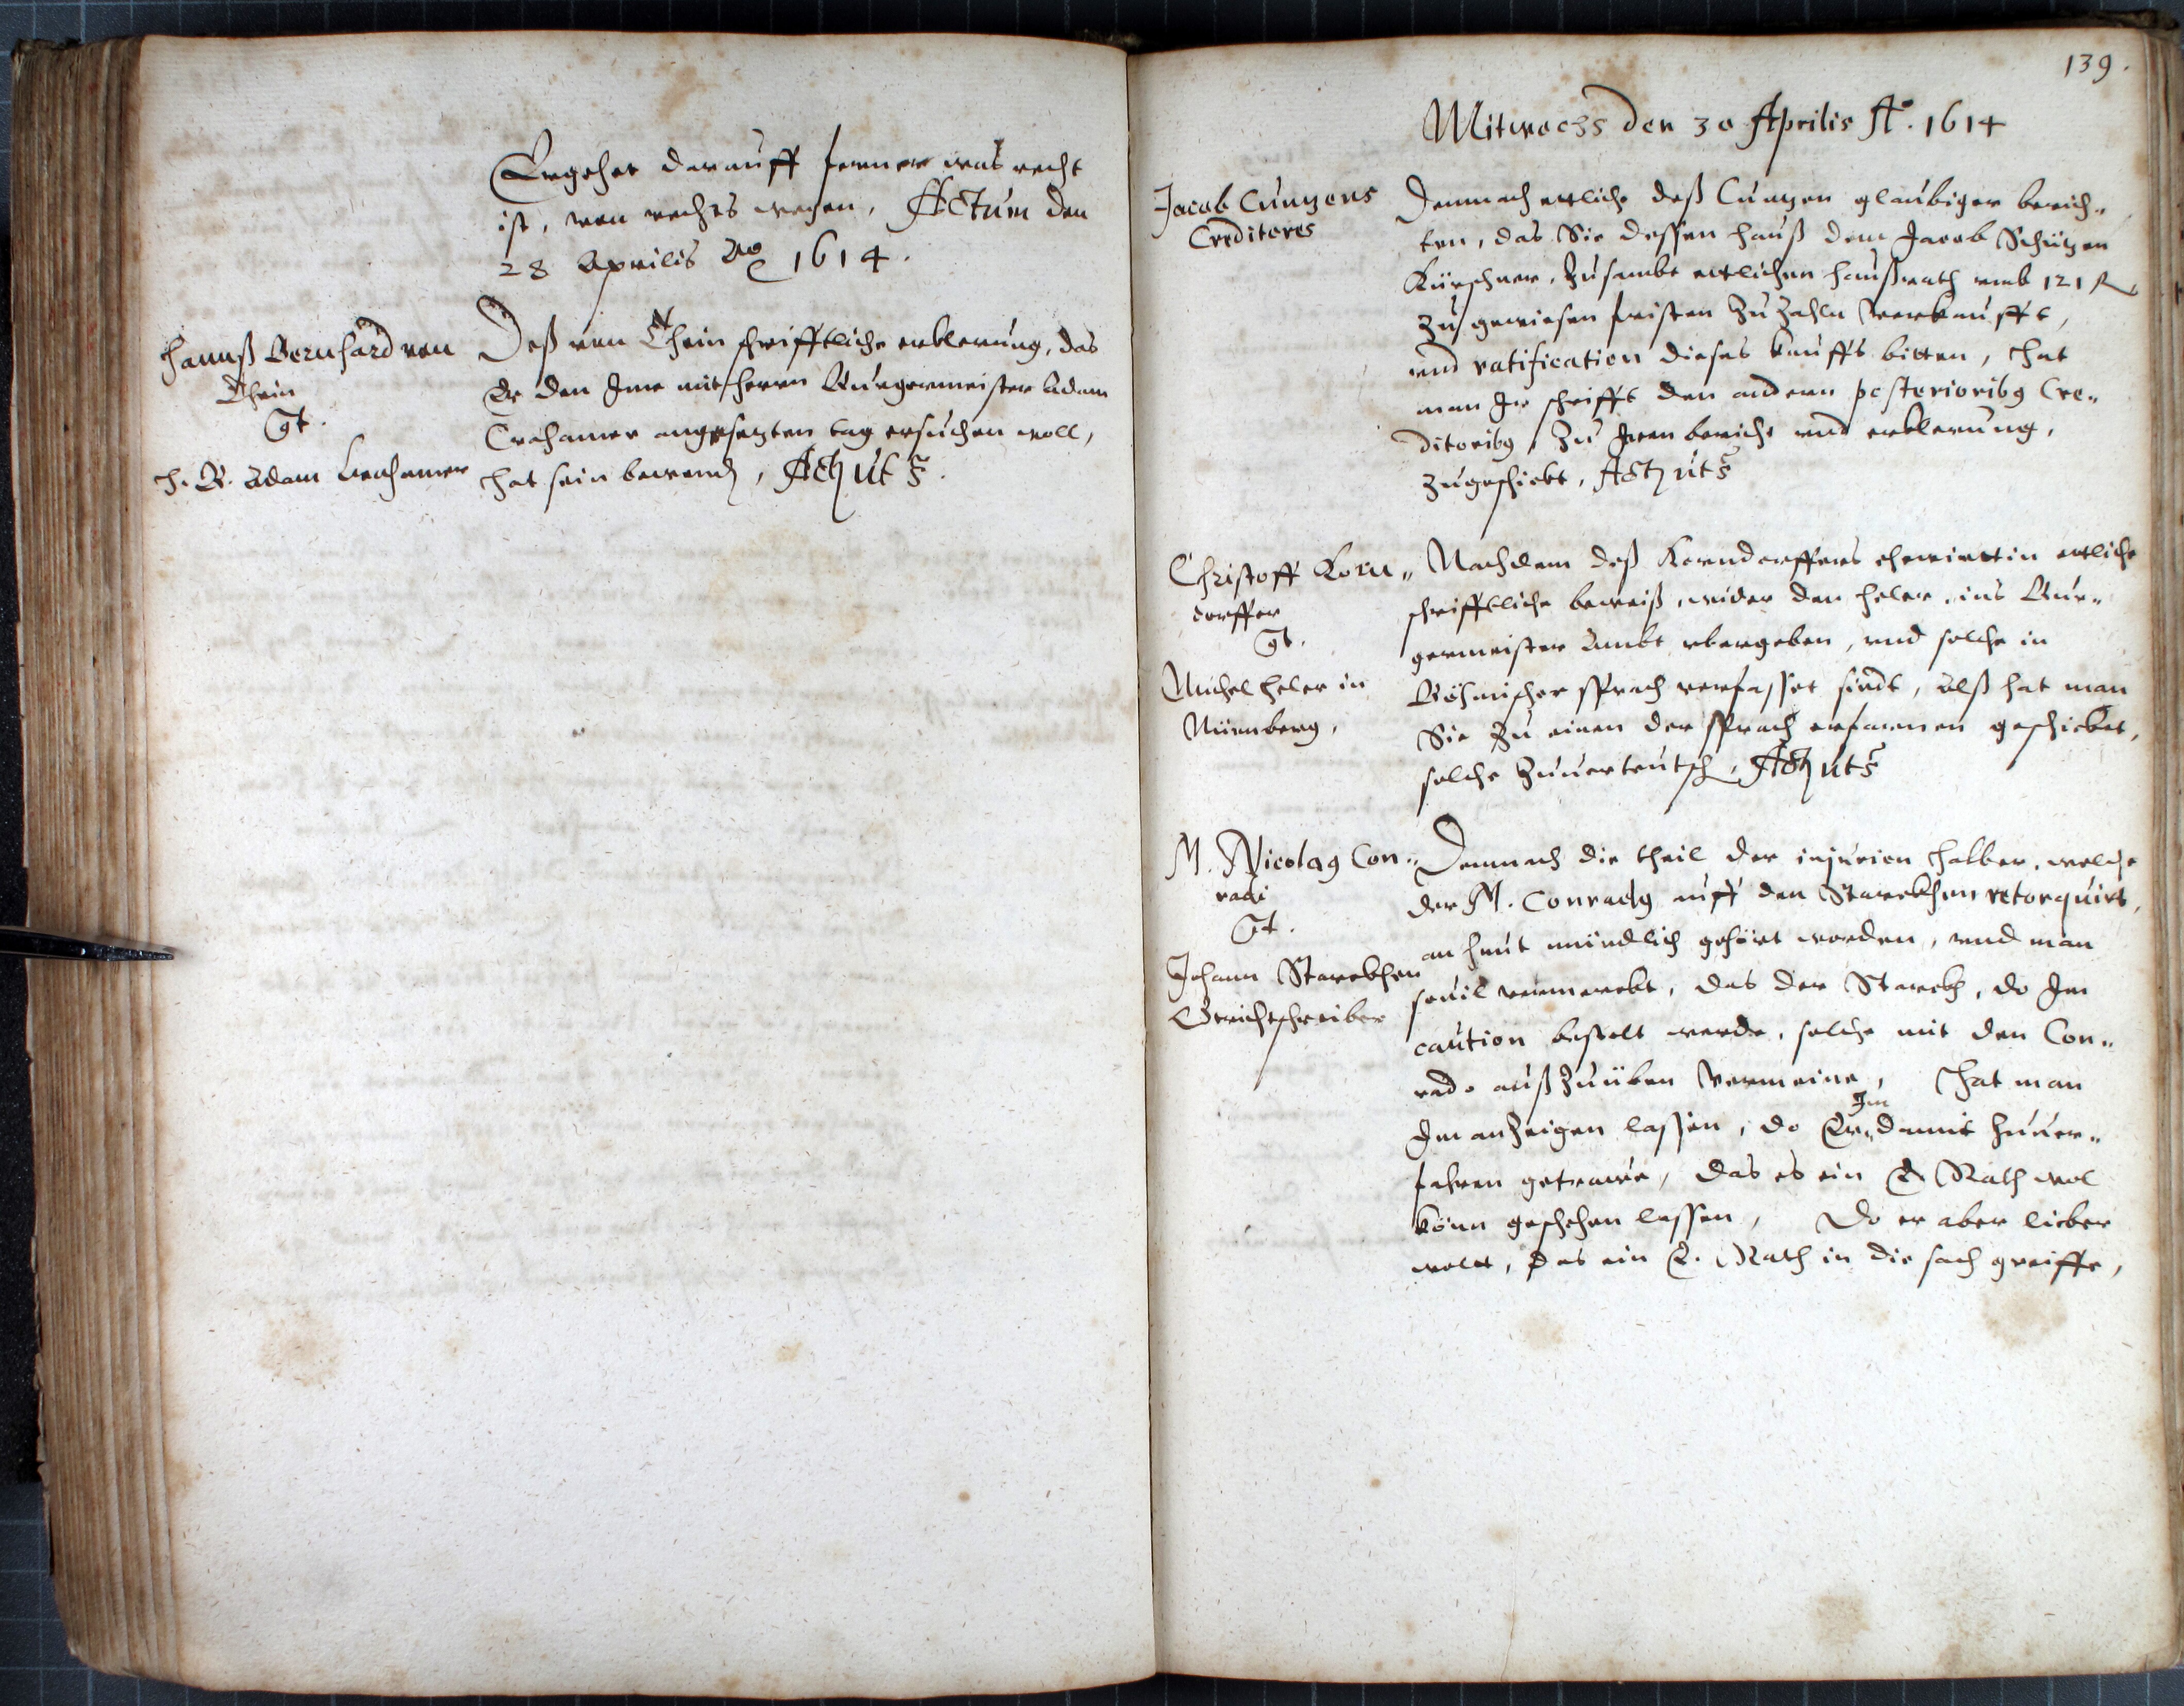 Ergehet darauff ferner was recht
ist, von rechts wegen, Actum den
28 Aprilis Ao 1614.
Hannß Bernhard von
Thein
Ct.
H. B. Adam Trahamer
Deß von Thein schrifftliche erklerung, das
Er den Ime mit Herrn Burgermeister Adam
Trahamer angesetzten tag ersuchen woll,
hat sein bewend, Act ut s.
139.
Mitwochs den 30 Aprilis Ao. 1614
Jacob Cuntzens
Creditores
Demnach ettliche deß Cuntzen glaubiger berich„
ten, das Sie dessen hauß dem Jacob Schützen
Kürschner, Zusambt ettlichen haußrath umb 121 fl
zu gewiesen fristen Zu Zahln verkaufft,
und ratification dieses kauffs bitten, hat
man Ir schrifft den andern posterioribg Cre„
ditoribg, Zu Irem bericht und erklerung,
zugeschickt, Act ut s
Christoff Korn„
dorffer
Ct.
Michel Heler in
Nürmberg,
Nachdem deß Korndorffers ehewirttin ettliche
schrifftliche beweiß, wider den Heler, ins Bur„
germeister Ambt ubergeben, und solche in
Böhmischer sprach verfasset sindt, Alß hat man
Sie Zu einen der sprach erfarnen geschicket,
solche Zuuerteutsch, Act ut s
M. Nicolag Con„
radi
Ct.
Johann Starckhen
Gerichtschreiber
Demnach die theil der injurien halber, welche
der M. Conradg uff den Starckhen retorquirt,
an heut mündlich gehört worden, und man
souil vermerckt, das der Starckh, do Im
caution bestelt werde, solche mit den Con„
rado auß Zuüben Vermeine, Hat man
Im anZeigen lassen, do Er Im damit Zuuer„
fahren getrawe, das es ein E. Rath wol
könn geschehen lassen, Do er aber lieber
wolt, das ein E. Rath in die sach greiffe,